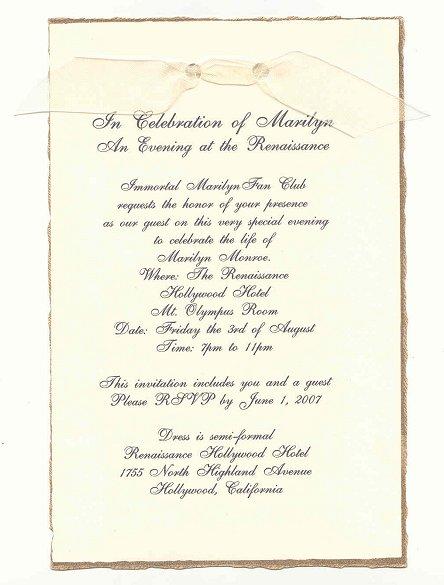 In Celebration of Marilyn
An Evening at the Renaissance
Immortal Marilyn Fan Club
requests the honor of your presence
as our guest on this very special evening
to celebrate the life of
Marilyn Monroe.
Where: The Renaissance
Hollywood Hotel
Mt. Olympus Room
Date: Friday the 3rd of August
Time: 7pm to 11pm
This invitation includes you and a guest
Please RSVP by June 1, 2007
Dress is semi-formal
Renaissance Hollywood Hotel
1755 North Highland Avenue
Hollywood, California